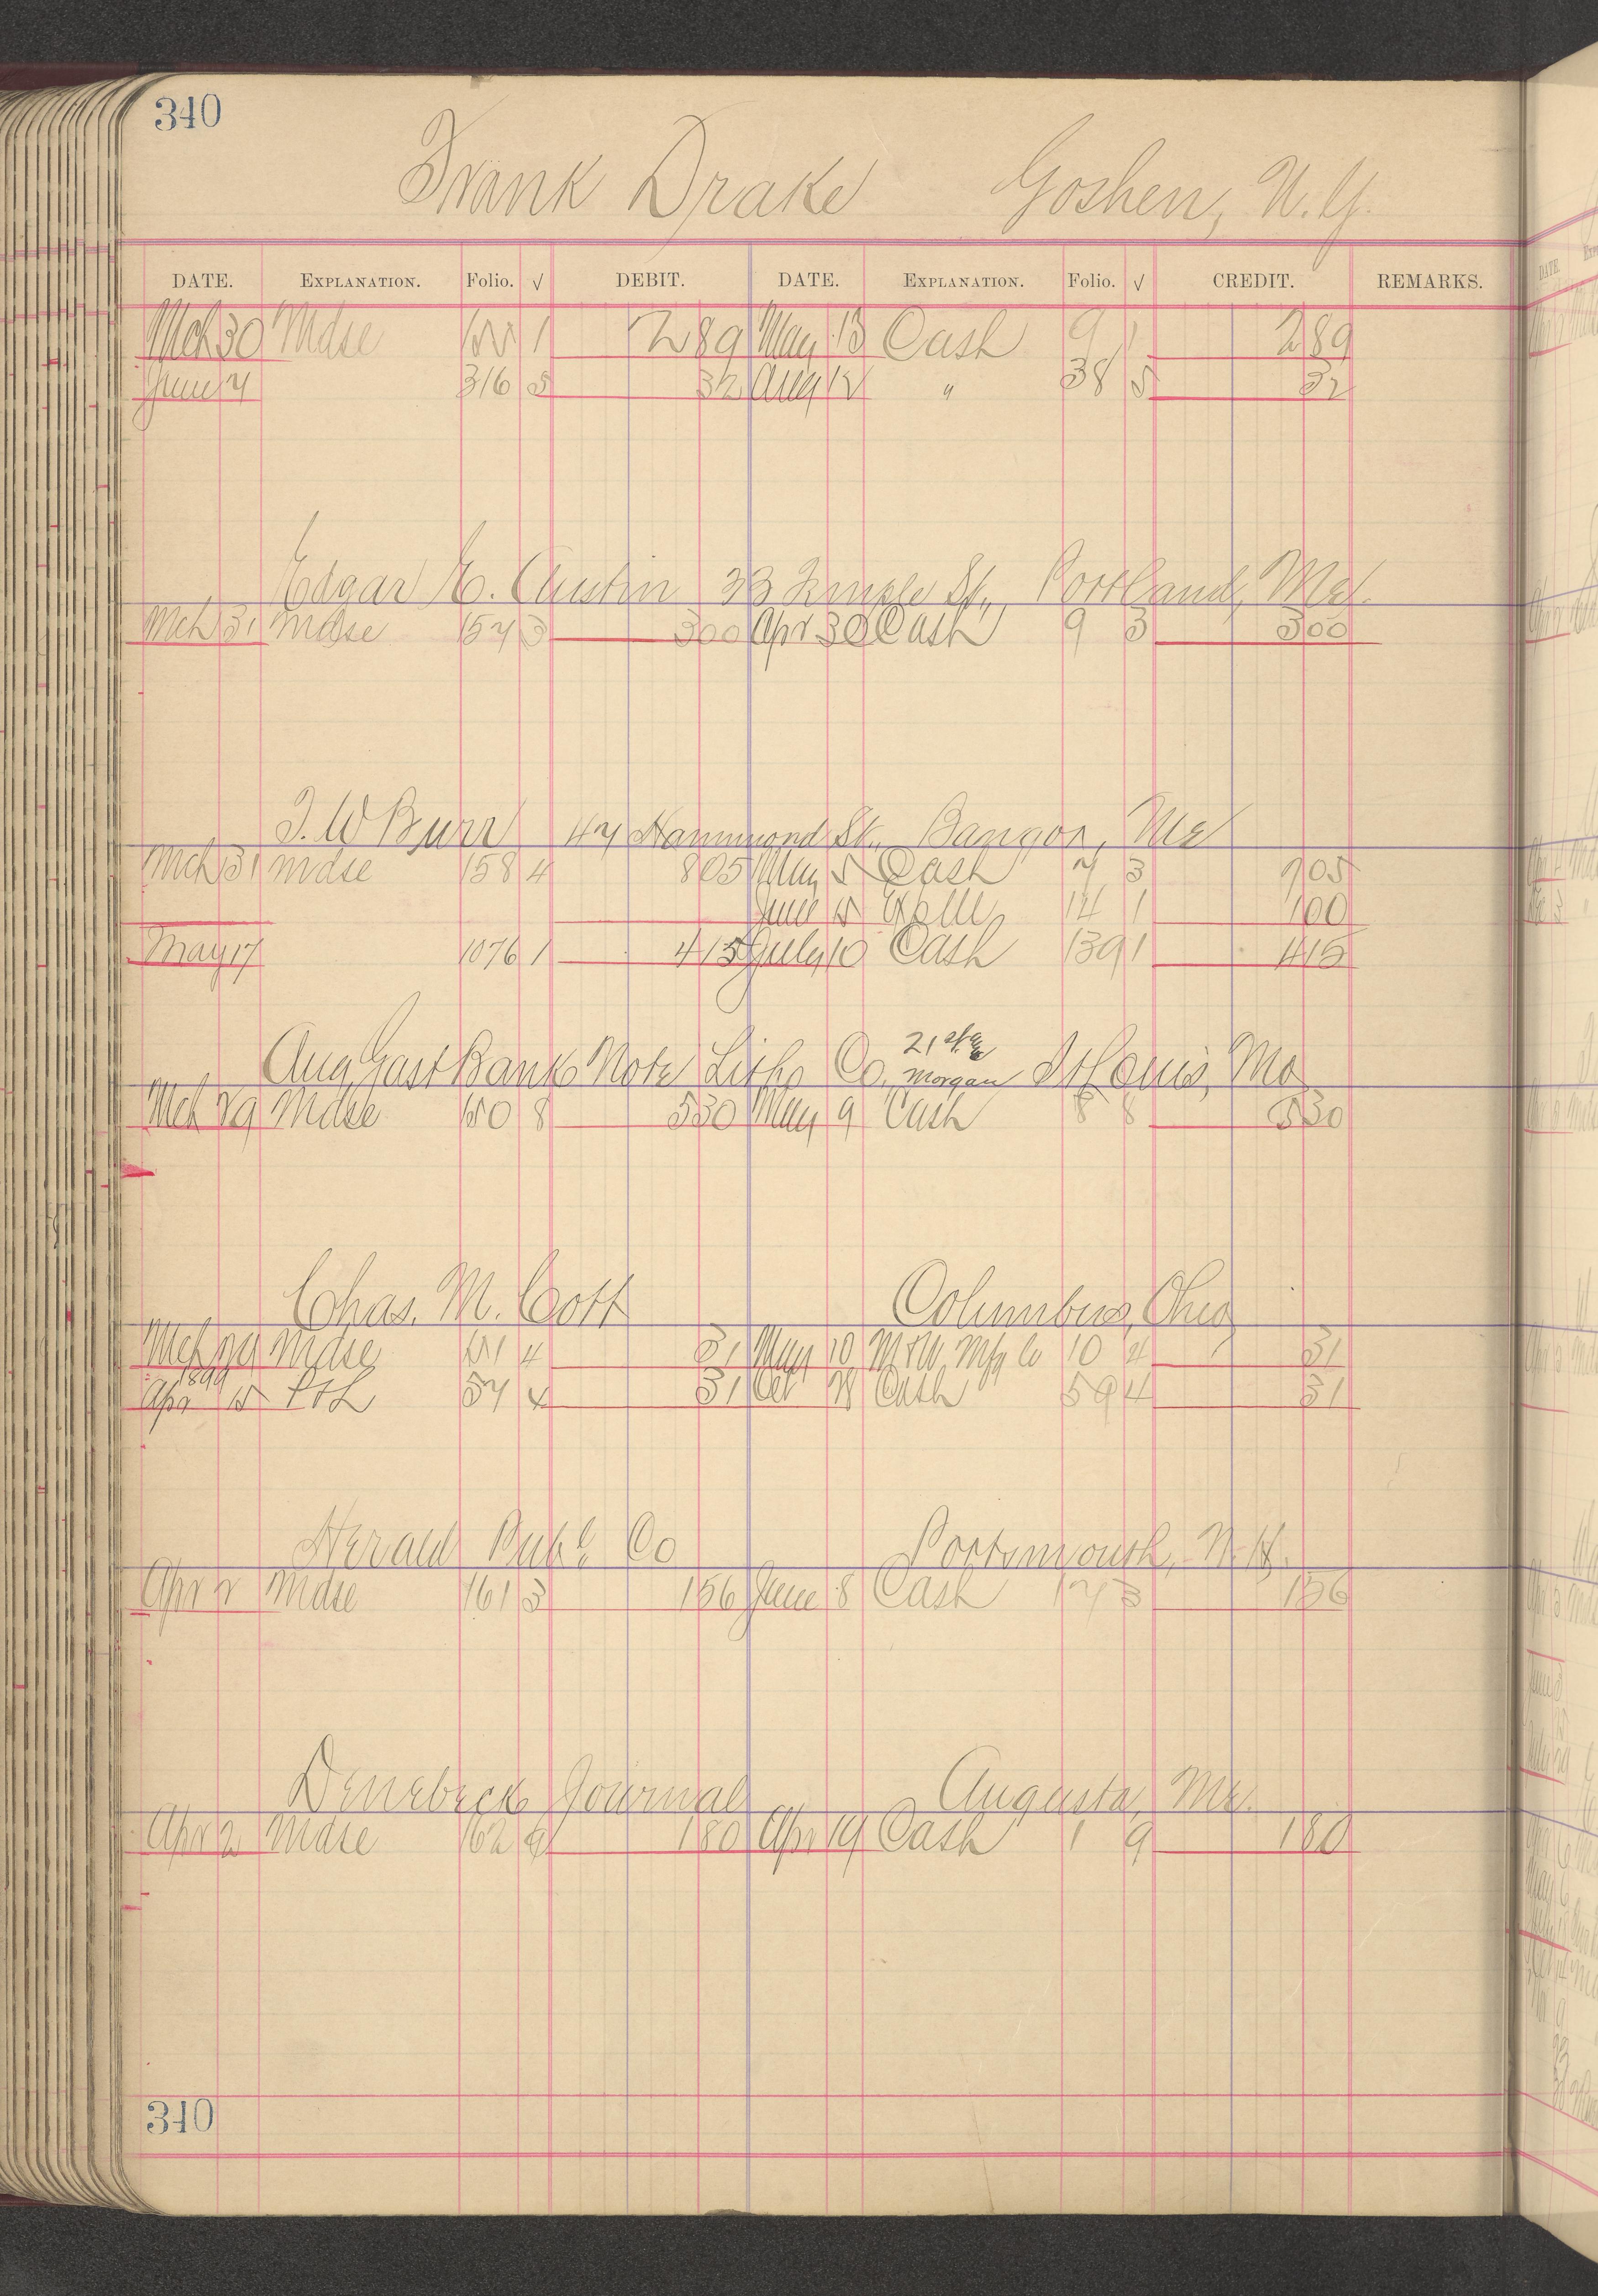 340
Frank Drake Goshen, N.Y.
DATE. EXPLANATION. Folio. √ DEBIT. DATE. EXPLANATION. Folio. √ CREDIT. REMARKS.
Mch 30 Mdse 1 289 May 13 Cash 9 1 289
June 7 316 5 32 Aug 12 " 38 5 32
Edgar E. Austin 33 Temple St., Portland, Me.
Mch 31 Mdse 157 3 300 Apr 30 Cash 9 3 300
T. W Burr 47 Hammond St., Bangor, Me
Mch 31 Mdse 158 4 805 May 5 Cash 7 3 705
June 15 14 1 100
May 17 1076 1 415 July 10 Cash 139 1 415
Aug Gast Bank Note Litho Co. 21 st & Morgan St Louis, Mo
Mch 29 Mdse 150 8 530 May 9 Cash 8 8 530
Chas. M. Cott Columbus, Ohio
Mch 29 Mdse 151 4 31 May 10 Mfg Co 10 4 31
1899
Apr 15 P & L 57 4 31 Oct 28 Cash 59 4 31
Herald Pub'g Co Portsmouth, N.H.
Apr 2 Mdse 161 3 156 June 8 Cash 17 3 156
Kenebeck Journal Augusta, Me.
Apr 2 Mdse 162 9 180 Apr 19 Cash 1 9 180
340